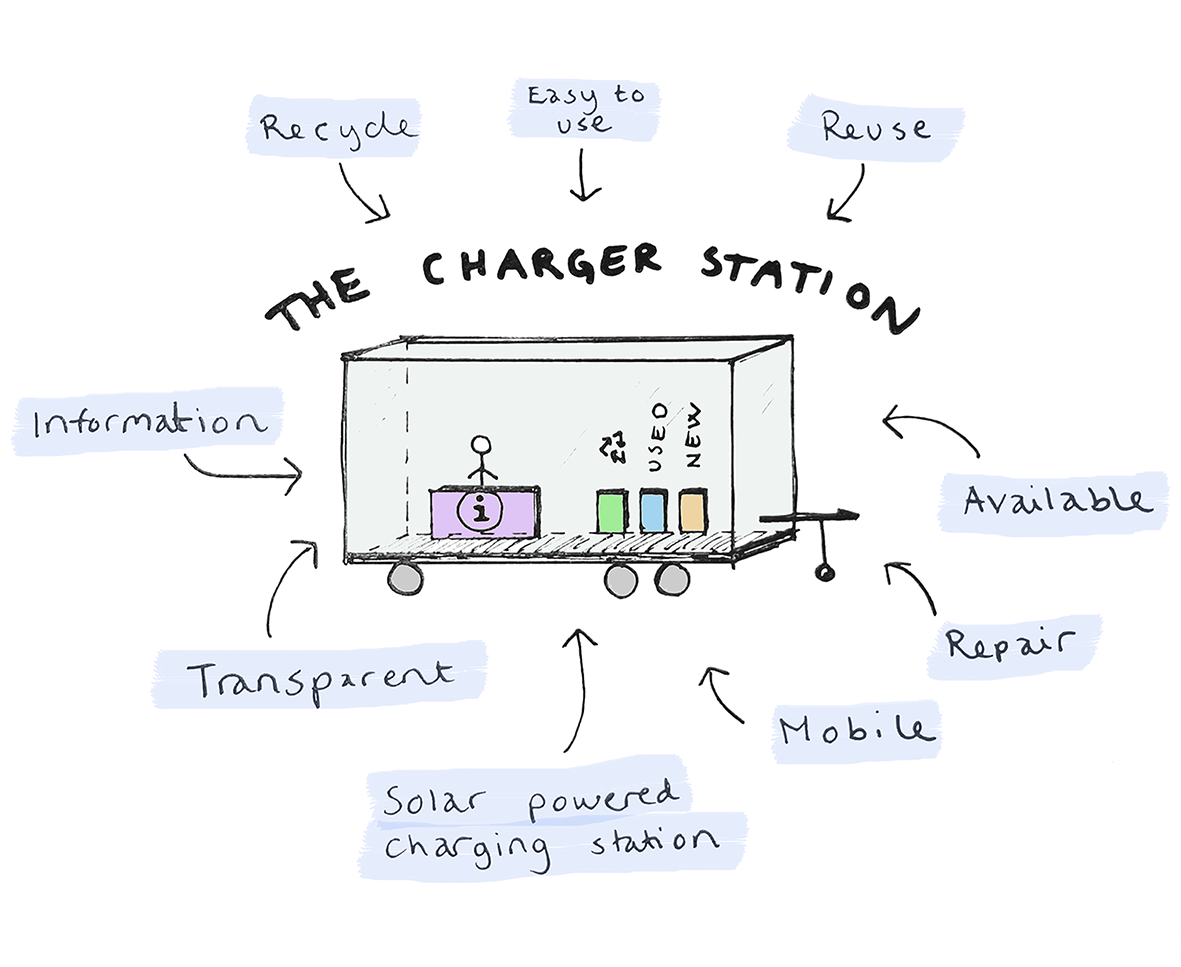 Recycle
Easy to
use
Reuse
THE CHARGER STATION
Information
USED
NEW
i
Available
Transparent
Repair
Mobile
Solar powered
charging station